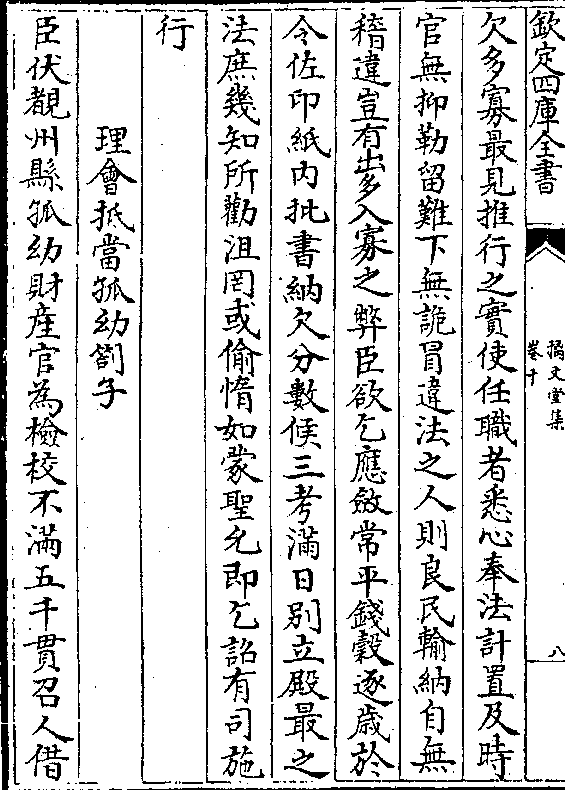 欽定四庫全書
摛文堂集
卷十
八
欠多寡最見推行之實使任職者悉心奉法計置及時
官無抑勒留難下無詭冒違法之人則良民輸納自無
稽違豈有出多入寡之弊臣欲乞應斂常平錢穀逐歳於
令佐印紙内批書納欠分數候三考滿日别立殿最之
法庶幾知所勸沮罔或偷惰如蒙聖允即乞詔有司施
行
理會抵當孤幼劄子
臣伏覩州縣孤幼財産官為檢校不滿五千貫召人借